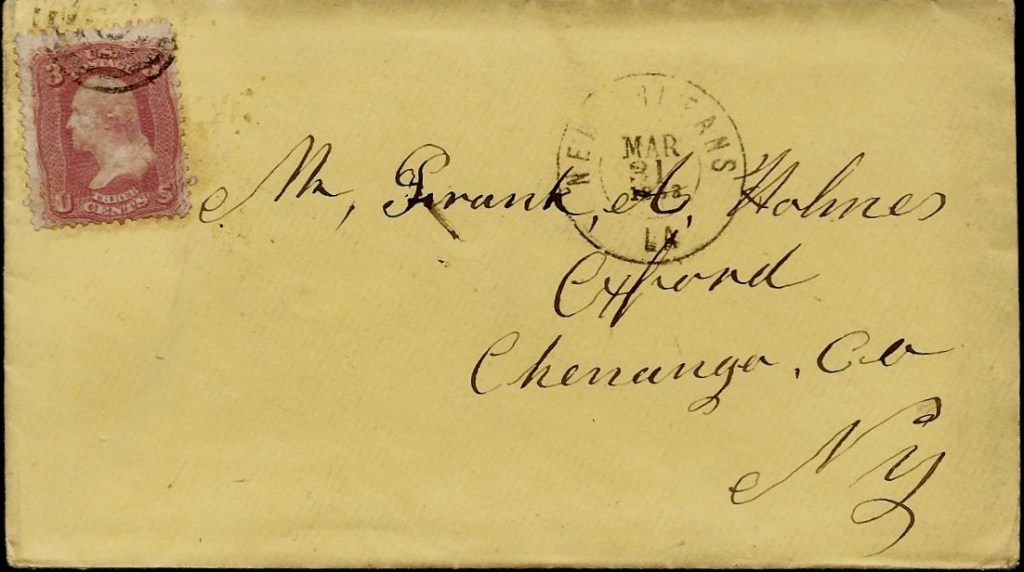 3
U THREE S
CENTS
NEW ORLEANS
MAR
31
LA
Mr, Frank, A, Holmes
Oxford
Chenango, Co
Ny